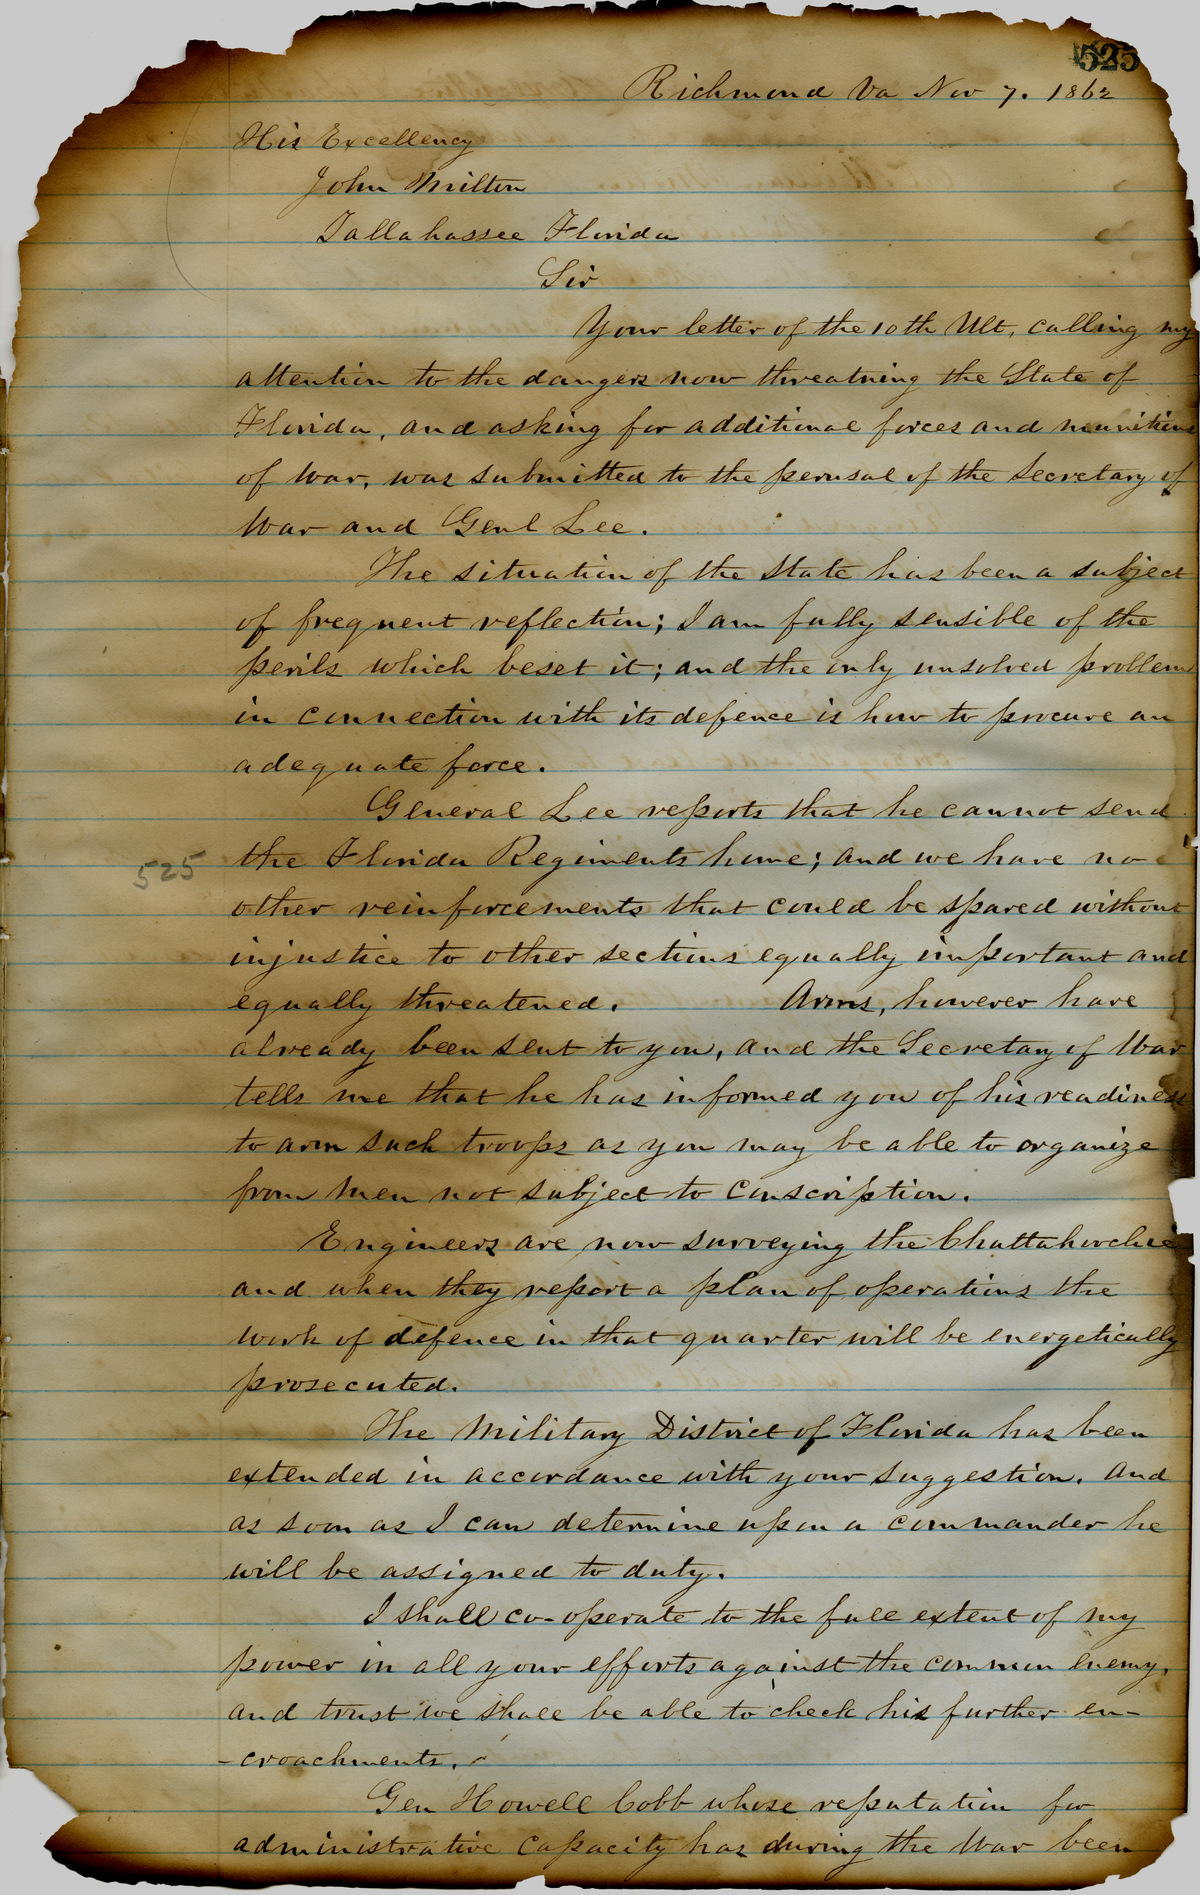 525
Richmond Va Nov 7. 1862
His Excellency
John Milton
Tallahassee Florida
Sir
Your letter of the 10th Ult, calling my
attention to the dangers now threatning the State of
Florida, and asking for additional forces and munitions
of war, was submitted to the perusal of the Secretary of
War and Genl Lee.
The situation of the State has been a subject
of frequent reflection; I am fully sensible of the
perils which beset it; and the only unsolved problem
in connection with its defence is how to procure an
adequate force.
General Lee reports that he cannot send
525 the Florida Regiments home; and we have no
other reinforcements that could be spared without
injustice to other sections equally important and
equally threatened. Arms, however have
already been sent to you, and the Secretary of War
tells me that he has informed you of his readiness
to arm such troops as you may be able to organize
from men not subject to conscription.
Engineers are now surveying the Chattahoochee
and when they report a plan of operations the
work of defence in that quarter will be energetically
prosecuted.
The Military District of Florida has been
extended in accordance with your suggestion. And
as soon as I can determine upon a commander he
will be assigned to duty.
I shall co-operate to the full extent of my
power in all your efforts against the common enemy,
and trust we shall be able to check his further en-
-croachments.
Gen Howell Cobb whose reputation for
administrative capacity has during the War been